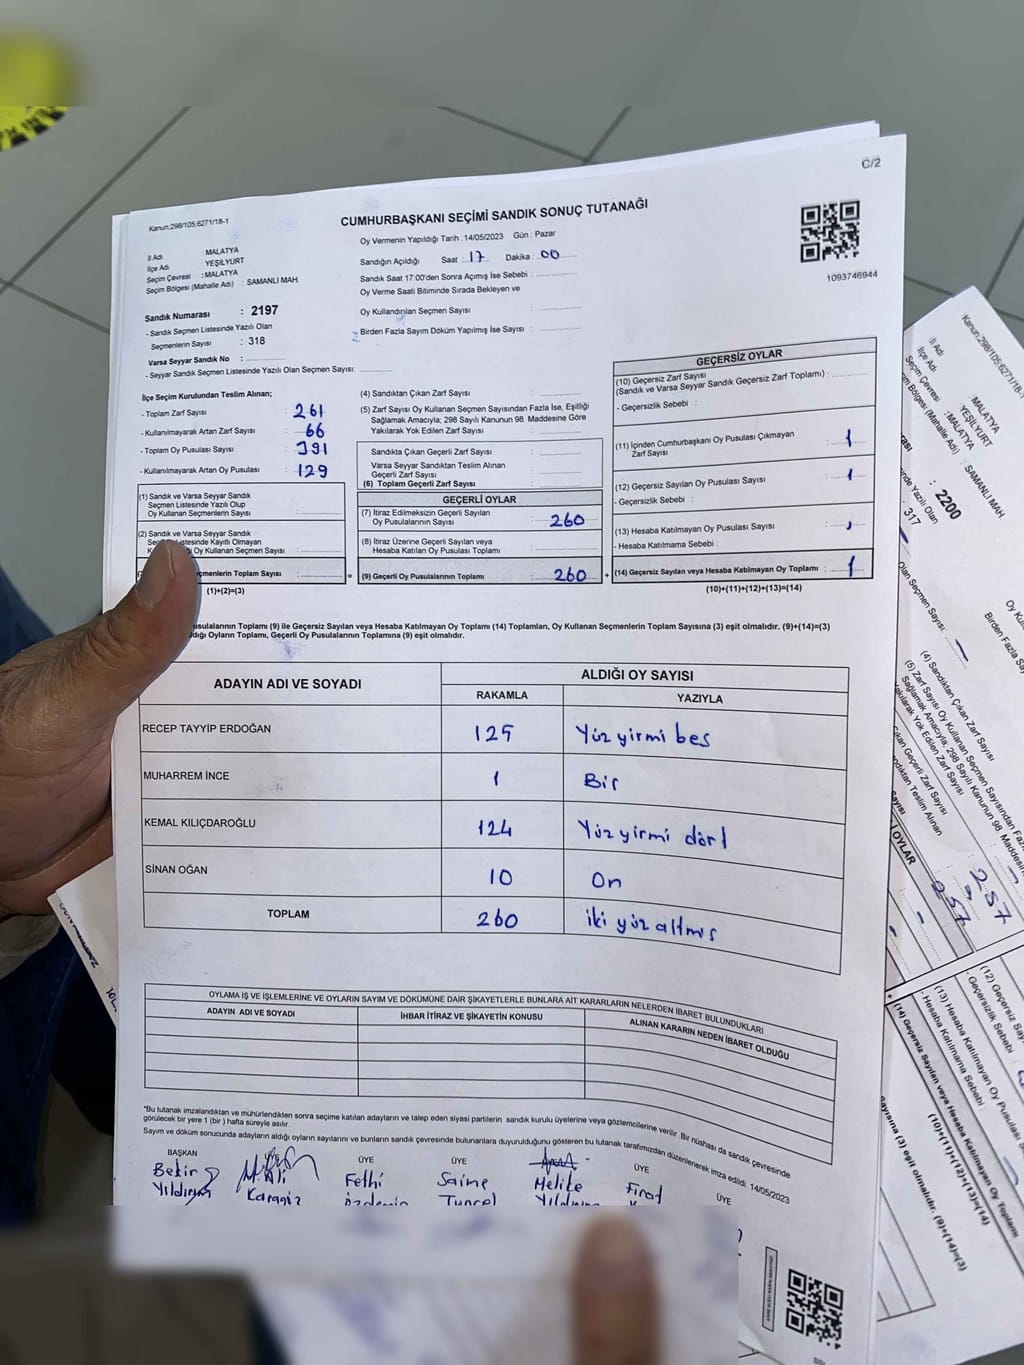 C/2
Kanun;298/105;6271/18-1
CUMHURBAŞKANI SEÇİMİ SANDIK SONUÇ TUTANAĞI
Oy Vermenin Yapıldığı Tarih : 14/05/2023 Gün : Pazar
İl Adı : MALATYA
İlçe Adı : YEŞİLYURT
Seçim Çevresi : MALATYA
Seçim Bölgesi (Mahalle Adı) : SAMANLI MAH
Sandığın Açıldığı Saat : 17 Dakika : 00
Sandık Saat 17:00'den Sonra Açımış İse Sebebi :
Oy Verme Saati Bitiminde Sırada Bekleyen ve
Oy Kullandırılan Seçmen Sayısı :
Birden Fazla Sayım Döküm Yapılmış İse Sayısı :
1093746944
Sandık Numarası : 2197
- Sandık Seçmen Listesinde Yazılı Olan
Seçmenlerin Sayısı : 318
Varsa Seyyar Sandık No :
- Seyyar Sandık Seçmen Listesinde Yazılı Olan Seçmen Sayısı:
İlçe Seçim Kurulundan Teslim Alınan;
- Toplam Zarf Sayısı : 261
- Kullanılmayarak Artan Zarf Sayısı : 66
- Toplam Oy Pusulası Sayısı : 391
- Kullanılmayarak Artan Oy Pusulası : 129
(1) Sandık ve Varsa Seyyar Sandık
Seçmen Listesinde Yazılı Olup
Oy Kullanan Seçmenlerin Sayısı :
(2) Sandık ve Varsa Seyyar Sandık
Listesinde Kayıtlı Olmayan
Oy Kullanan Seçmen Sayısı :
Toplam Sayısı :
(1)+(2)=(3)
(4) Sandıktan Çıkan Zarf Sayısı :
(5) Zarf Sayısı Oy Kullanan Seçmen Sayısından Fazla İse, Eşitliği
Sağlamak Amacıyla; 298 Sayılı Kanunun 98. Maddesine Göre
Yakılarak Yok Edilen Zarf Sayısı :
Sandıkta Çıkan Geçerli Zarf Sayısı :
Varsa Seyyar Sandıktan Teslim Alınan
Geçerli Zarf Sayısı :
(6) Toplam Geçerli Zarf Sayısı :
GEÇERLİ OYLAR
(7) İtiraz Edilmeksizin Geçerli Sayılan
Oy Pusulalarının Sayısı : 260
(8) İtiraz Üzerine Geçerli Sayılan veya
Hesaba Katılan Oy Pusulası Toplamı :
(9) Geçerli Oy Pusulalarının Toplamı : 260
GEÇERSİZ OYLAR
(10) Geçersiz Zarf Sayısı
(Sandık ve Varsa Seyyar Sandık Geçersiz Zarf Toplamı) :
- Geçersizlik Sebebi :
(11) İçinden Cumhurbaşkanı Oy Pusulası Çıkmayan
Zarf Sayısı : 1
(12) Geçersiz Sayılan Oy Pusulası Sayısı : 1
- Geçersizlik Sebebi :
(13) Hesaba Katılmayan Oy Pusulası Sayısı :
- Hesaba Katılmama Sebebi :
(14) Geçersiz Sayılan veya Hesaba Katılmayan Oy Toplamı : 1
(10)+(11)+(12)+(13)=(14)
usulalarının Toplamı (9) ile Geçersiz Sayılan veya Hesaba Katılmayan Oy Toplamı (14) Toplamları, Oy Kullanan Seçmenlerin Toplam Sayısına (3) eşit olmalıdır. (9)+(14)=(3)
dığı Oyların Toplamı, Geçerli Oy Pusulalarının Toplamına (9) eşit olmalıdır.
ADAYIN ADI VE SOYADI
ALDIĞI OY SAYISI
RAKAMLA YAZIYLA
RECEP TAYYİP ERDOĞAN 125 Yüz yirmi beş
MUHARREM İNCE 1 Bir
KEMAL KILIÇDAROĞLU 124 Yüz yirmi dört
SİNAN OĞAN 10 On
TOPLAM 260 iki yüz altmış
OYLAMA İŞ VE İŞLEMLERİNE VE OYLARIN SAYIM VE DÖKÜMÜNE DAİR ŞİKAYETLERLE BUNLARA AİT KARARLARIN NELERDEN İBARET BULUNDUKLARI
ADAYIN ADI VE SOYADI
İHBAR İTİRAZ VE ŞİKAYETİN KONUSU
ALINAN KARARIN NEDEN İBARET OLDUĞU
*Bu tutanak imzalandıktan ve mühürlendikten sonra seçime katılan adayların ve talep eden siyasi partilerin sandık kurulu üyelerine veya gözlemcilerine verilir. Bir nüshası da sandık çevresinde
görülecek bir yere 1 (bir) hafta süreyle asılır.
Sayım ve döküm sonucunda adayların aldığı oyların sayılarını ve bunların sandık çevresinde bulunanlara duyurulduğunu gösteren bu tutanak tarafımızdan düzenlenerek imza edildi. 14/05/2023
BAŞKAN
Bekir
Yıldırım
M. Ali
Karagiz
ÜYE
Fethi
özdemir
ÜYE
Saime
Tuncel
Melike
Yıldırım
ÜYE
Fırat
ÜYE
Kanun;298/105;6271/18-1
İl Adı : MALATYA
İlçe Adı : YEŞİLYURT
Seçim Çevresi : MALATYA
: SAMANLI MAH
: 2200
317
(4) Sandıktan Çıkan Zarf Sayısı
257
257
(14) Geçersiz Sayılan veya Hesaba Katılmayan Oy Toplamı
(10)+(11)+(12)+(13)=(14)
Sayısına (3) eşit olmalıdır. (9)+(14)=(3)